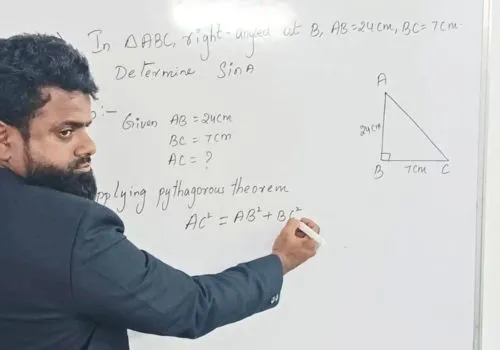 In ΔABC, right-angled at B, AB=24cm, BC=7cm.
Determine Sin A
:-
Given AB = 24cm
BC = 7cm
AC = ?
pplying pythagorous theorem
AC² = AB² + BC²
A
24cm
B 7cm C